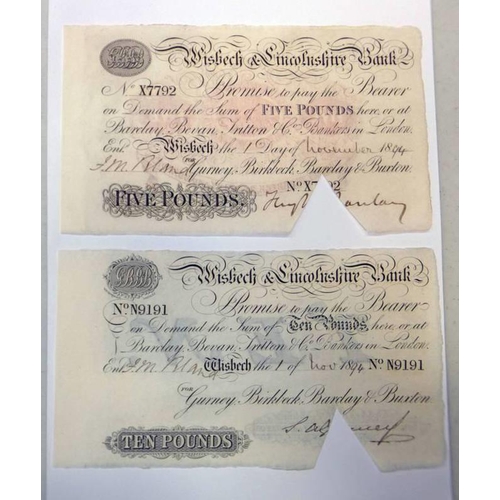 Wisbech & Lincolnshire Bank
No X7792 I Promise to pay the Bearer
on Demand the Sum of FIVE POUNDS here, or at
Barclay, Bevan, Tritton & Co. Bankers in London.
Wisbech the 1 Day of November 1894
Entd. J.M. Bland FOR Gurney, Birkbeck, Barclay & Buxton.
No X7792
FIVE POUNDS. Hugh Barclay
Wisbech & Lincolnshire Bank
No N9191 I Promise to pay the Bearer
on Demand the Sum of Ten Pounds, here, or at
Barclay, Bevan, Tritton & Co. Bankers in London.
Entd. J.M. Bland Wisbech the 1 of Nov 1894 No N9191
FOR
Gurney, Birkbeck, Barclay & Buxton
TEN POUNDS